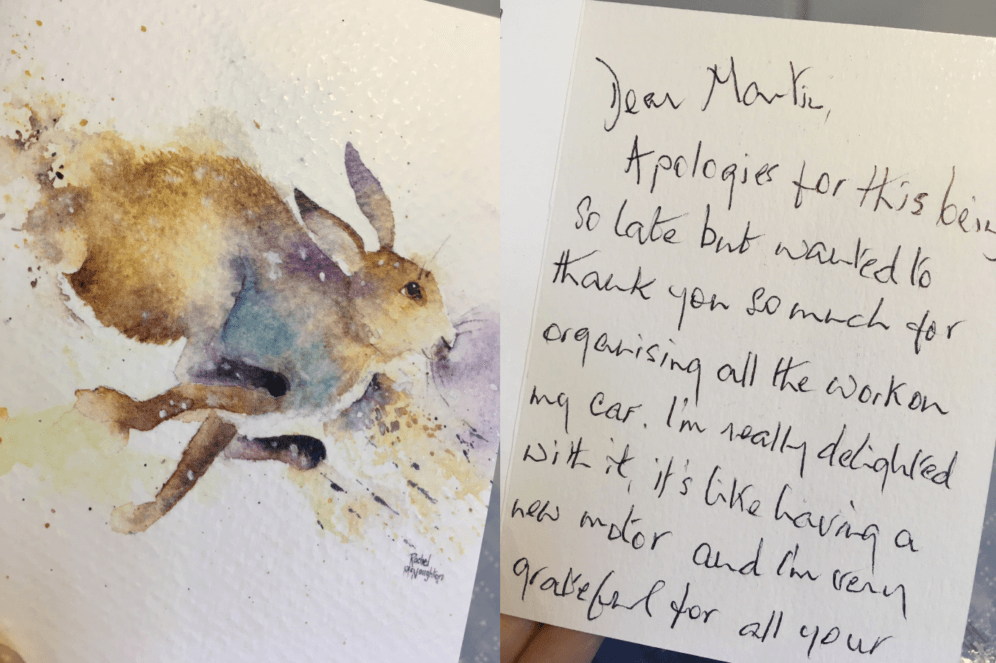 Rachel
Dear Martin,
Apologies for this being
so late but wanted to
thank you so much for
organising all the work on
my car. I'm really delighted
with it, it's like having a
new motor and I'm very
grateful for all your